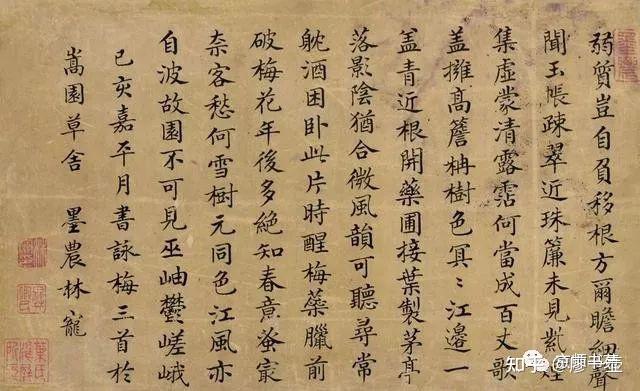 弱質豈自負移根方爾瞻細聲
聞玉帳疎翠近珠簾未見紫
集虛蒙清露霑何當成百丈欹
盖擁高簷枏樹色冥〻江邊一
盖青近根開藥圃接葉製茅亭
落影陰猶合微風韻可聽尋常
躭酒困卧此片時醒梅蘂臘前
破梅花年後多絕知春意蚤冣
柰客愁何雪樹元同色江風亦
自波故園不可見巫岫鬱嵯峨
己亥嘉平月書詠梅三首於
嵩園草舍 墨農林寵
知乎